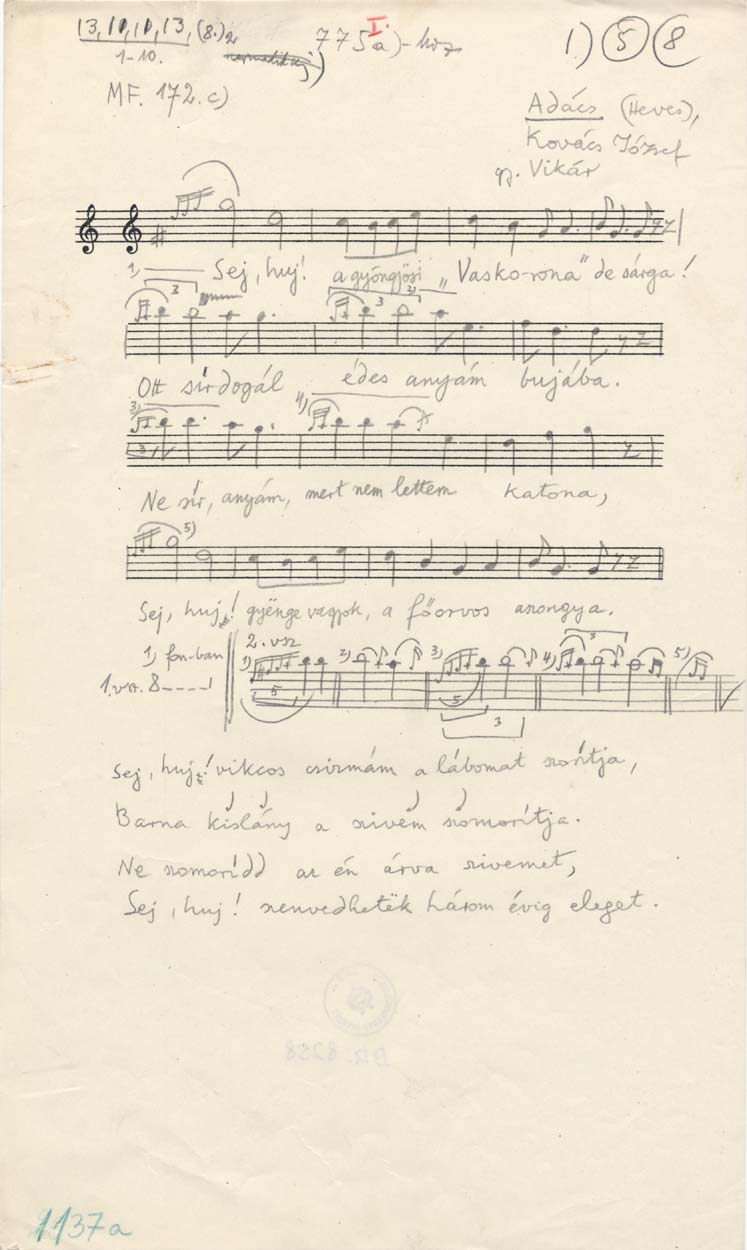 13, 10, 10, 13, (8.)2 775a)-hoz I. 1.) 5 8
1-10.
MF. 172. c) Adács (Heves),
Kovács József
gy. Vikár
1) Sej, huj! a gyöngyösi „Vasko-rona" de sárga!
3 3 2)
Ott sírdogál édes anyám bujába.
3) 4)
3
Ne sír, anyám, mert nem lettem katona,
5)
Sej, huj! gyënge vagyok, a főorvos aszongya.
1) fon-ban 2. vsz
1) 2) 3) 4) 3 5)
1. vsz. 8
5 5 3
Sej, huj! vikcos csizmám a lábomat szorítja,
Barna kislány a szivem szomorítja.
Ne szomorídd az én árva szivemet,
Sej, huj! szenvedhetëk három évig eleget.
1137a